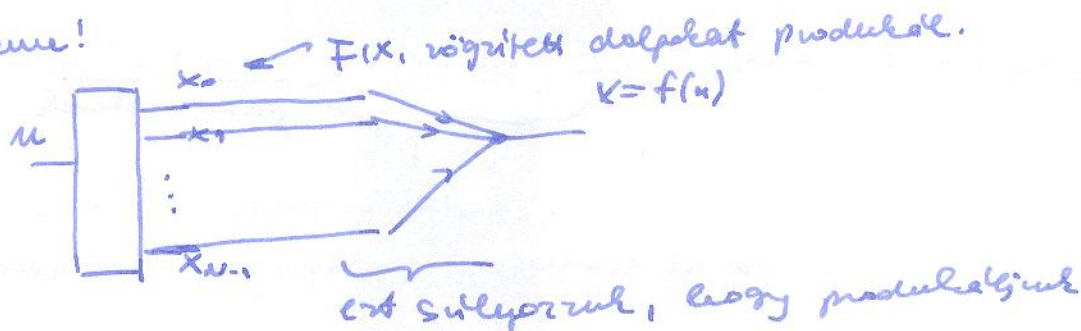 FIX, rögzített dolgokat produkál.
x₀
x = f(u)
u
x₁
⋮
x_{N-1}
ezt súlyozzuk, hogy produkáljunk